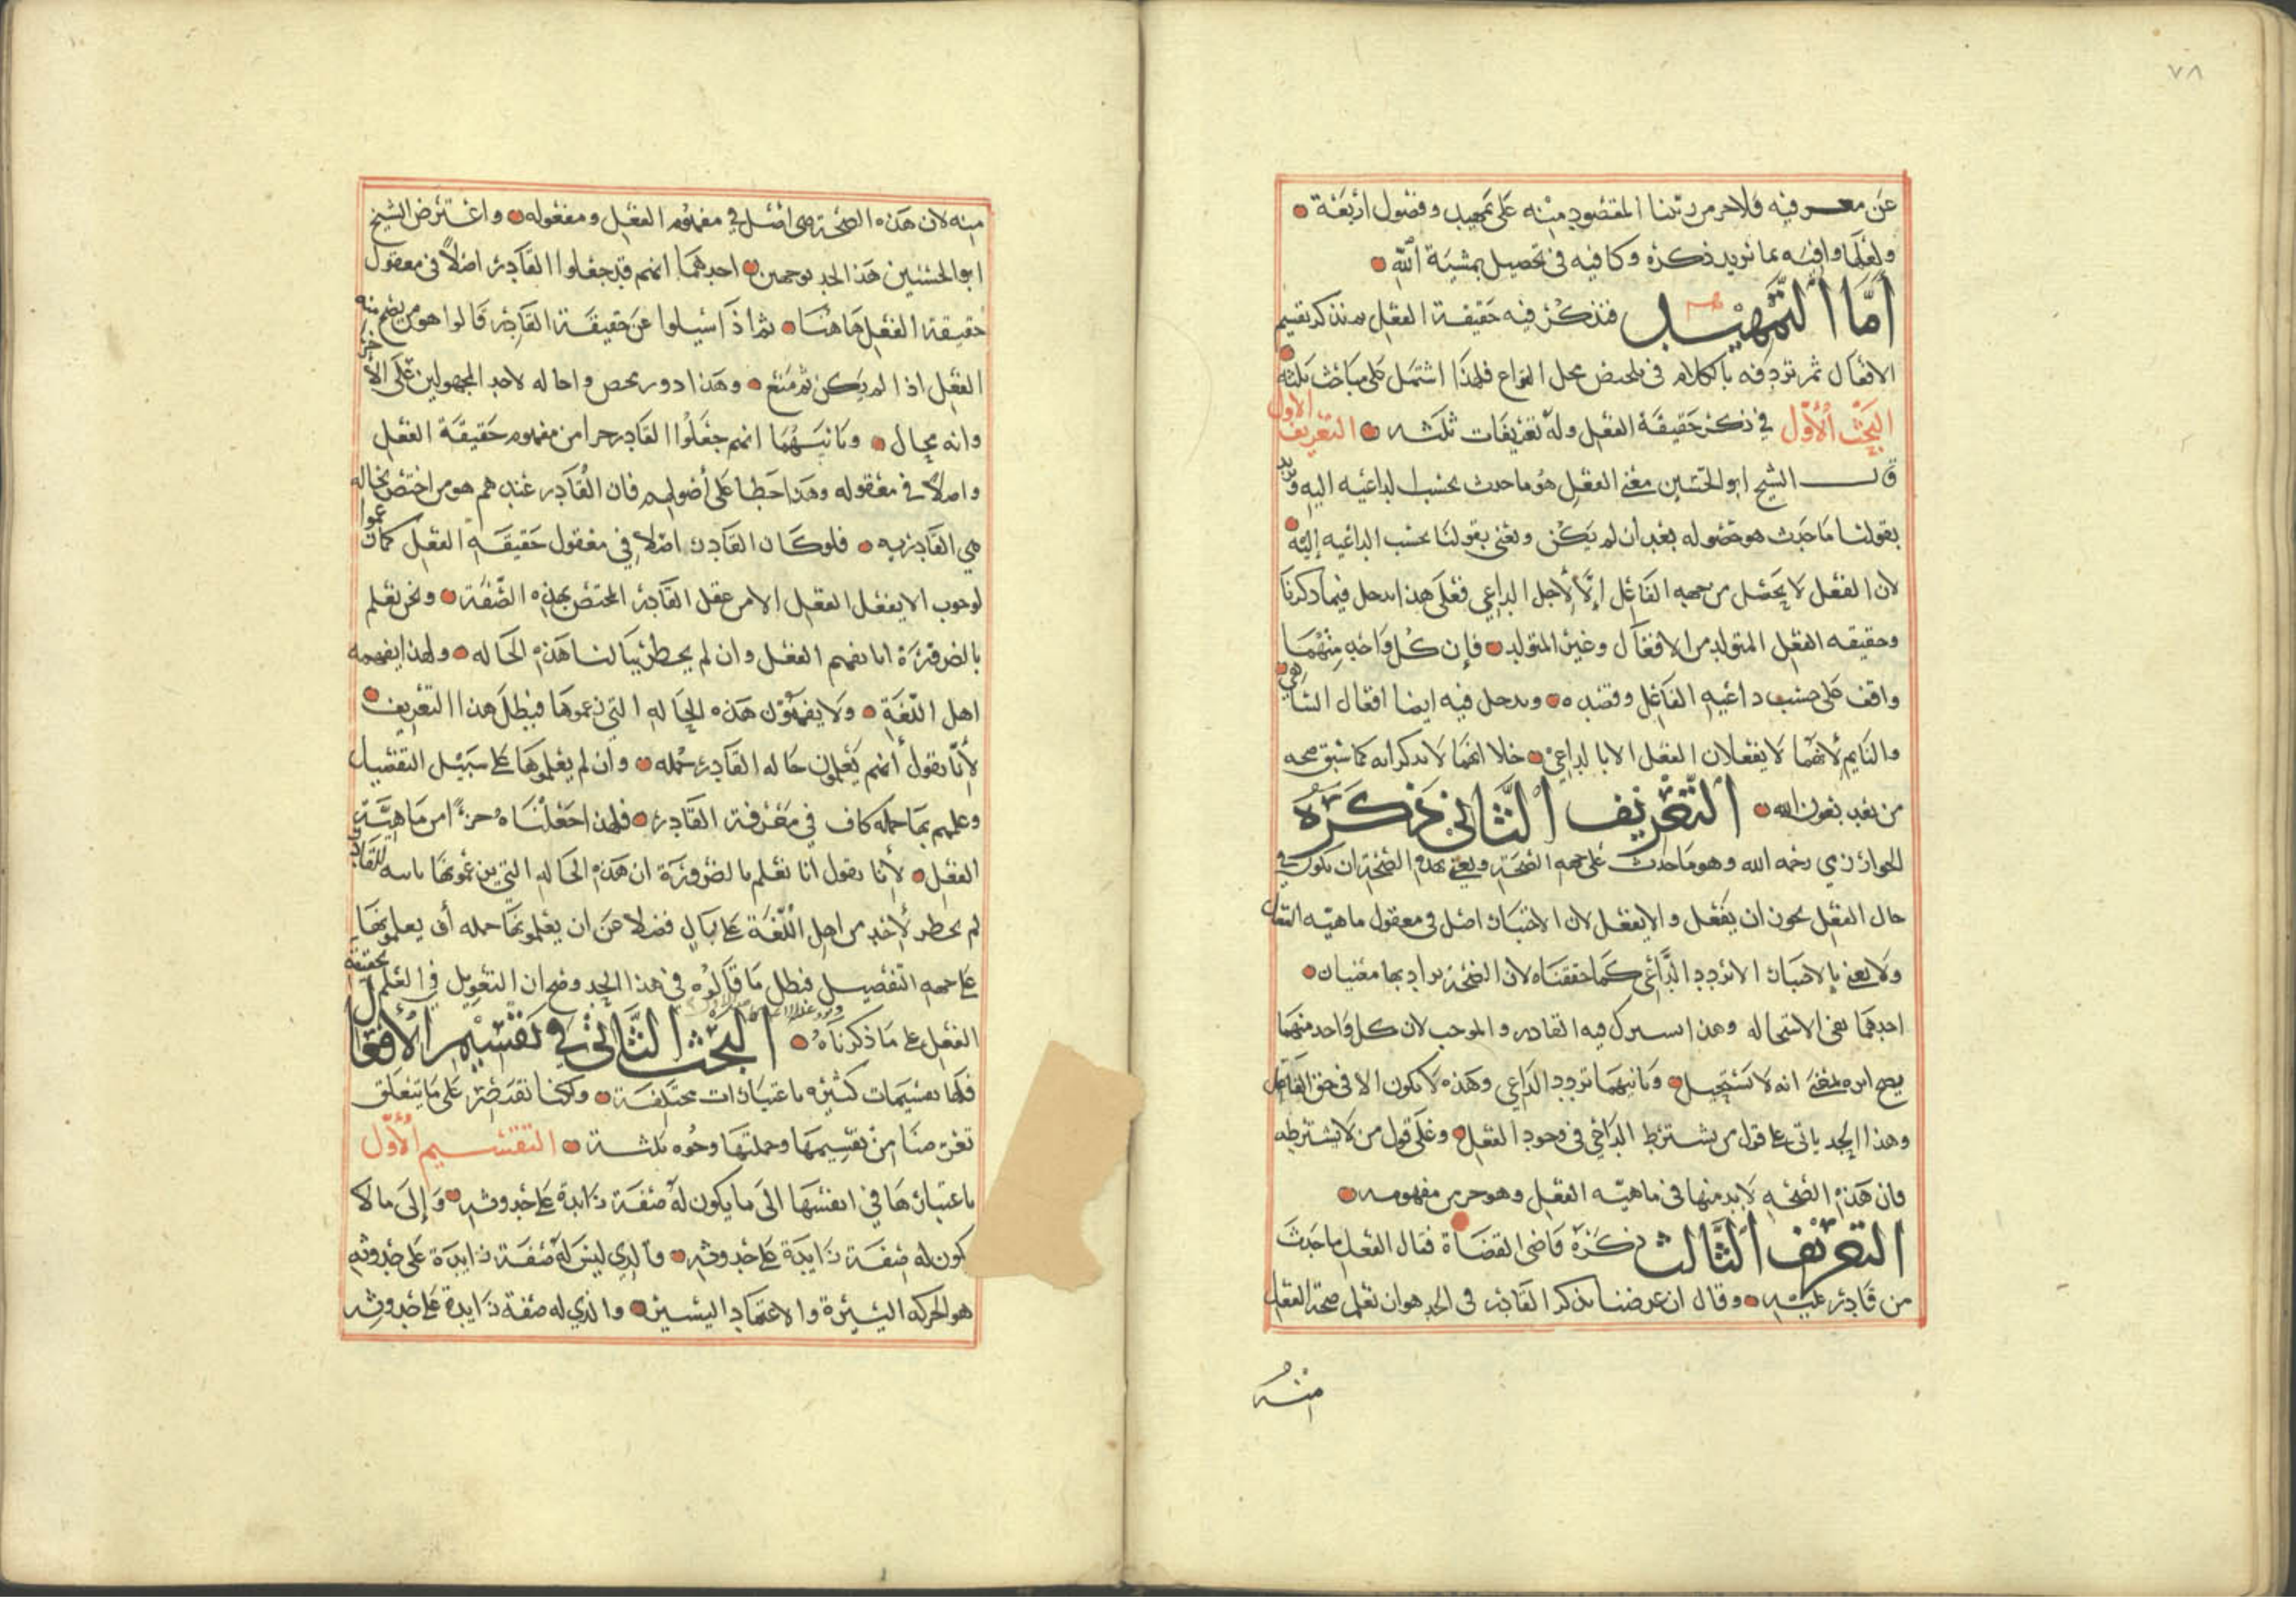 ٧٨
عن معرفته فلا جرم رتبنا المقصود منه على تمهيد وفصول اربعة
ولعلها وافيه بما نريد ذكره وكافيه فى تحصيل بمشية الله
أما التمهيد فنذكر فيه حقيقة الفعل ثم نذكر تقسيم
الافعال ثم نردفه بالكلام فى تلخيص محل النزاع فلهذا اشتمل على مباحث ثلثة
البحث الأول في ذكر حقيقة الفعل وله تعريفات ثلثه التعريف الاول
قال الشيخ ابو الحسين معنى الفعل هو ما حدث بحسب الداعيه اليه ونريد
بقولنا ما حدث هو حصوله بعد أن لم يكن ونعنى بقولنا بحسب الداعيه إليه
لان الفعل لا يحصل من جهه الفاعل إلا لأجل الداعي فعلى هذا يدخل فيما ذكرنا
وحقيقه الفعل المتولد من الافعال وغير المتولد فإن كل واحد منهما
واقف على حسب داعيه الفاعل وقصده ويدخل فيه ايضا افعال الساهي
والنايم لأنهما لا يفعلان الفعل الا بالداعي خلا انهما لا يذكرانه كما سبق صحه
من بعد بعون الله التعريف الثاني ذكره
الخوارزمي رحمه الله وهو ما حدث على جهه الصحة ويعنى بهذه الصحة ان تكون في
حال الفعل يجوز ان يفعل والا يفعل لان الاختيار اصل فى معقول ماهيه الفعل
ولا يعنى بالاختيار الا تردد الداعي كما حققناه لان الصحة يراد بها معنيان
احدهما نفى الاستحاله وهذا يشترك فيه القادر والموجب لان كل واحد منهما
يصح اثره لمعنى انه لا يستحيل وثانيهما تردد الداعي وهذه لا يكون الا فى حق الفاعل
وهذا الحد ياتى على قول من يشترط الداعي فى وجود الفعل وعلى قول من لا يشترطه
فان هذه الصحه لابد منها فى ماهيه الفعل وهو جزء من مفهومه
التعريف الثالث ذكره قاضى القضاة فقال الفعل ما حدث
من قادر عليه وقال ان غرضنا بذكر القادر فى الحد هو ان نعلم صحة الفعل
منه
منه لان هذه الصحة هى اصل في مفهوم الفعل ومفعوله واعترض الشيخ
ابو الحسين هذا الحد بوجهين احدهما انهم قد جعلوا القادر اصلاً فى معقول
حقيقة الفعل هاهنا ثم اذا سيلوا عن حقيقة القادر قالوا هو من يصح منه
الفعل اذا لم يكن ثم منع وهذا دور محض واحاله لاحد المجهولين على الأخر
وانه محال وثانيهما انهم جعلوا القادر جزءا من مفهوم حقيقة الفعل
واصلاً في معقوله وهذا خطا على أصولهم فان القادر عندهم هو من اختص بحاله
هي القادريه فلو كان القادر اصلا في معقول حقيقه الفعل كما زعموا
لوجب الا يعقل الفعل الا من عقل القادر المختص بهذه الصفة ونحن نعلم
بالضرورة انا نفهم الفعل وان لم يخطر ببالنا هذه الحاله ولهذا يفهمه
اهل اللغة ولا يفهمون هذه الحاله التي زعموها فبطل هذا التعريف
لأنا نقول أنهم يعلمون حاله القادر جمله وان لم يعلموها على سبيل التفصيل
وعلمهم بها جمله كاف في معرفة القادر فلهذا جعلناه جزءاً من ماهية
الفعل لأنا نقول انا نعلم بالضرورة ان هذه الحاله التي يزعمونها ثابته للقادر
لم يخطر لأحد من اهل اللغة على بال فضلا عن ان يعلمونها جمله أو يعلمونها
على جهه التفصيل فبطل ما قالوه فى هذا الحد وصح ان التعويل في العلم بحقيقة
الفعل على ما ذكرناه البحث الثاني في تقسيم الأفعال
فلها تقسيمات كثيره باعتبارات مختلفة ولكنا نقتصر على ما يتعلق
بغرضنا من تقسيمها وجملتها وجوه ثلثة التقسيم الأول
باعتبارها في انفسها الى ما يكون له صفة زايدة على حدوثه وإلى ما لا
يكون له صفة زايدة على حدوثه والذي ليس له صفة زايدة على حدوثه
هو الحركه اليسيرة والاعتماد اليسير والذي له صفة زايدة على حدوثه